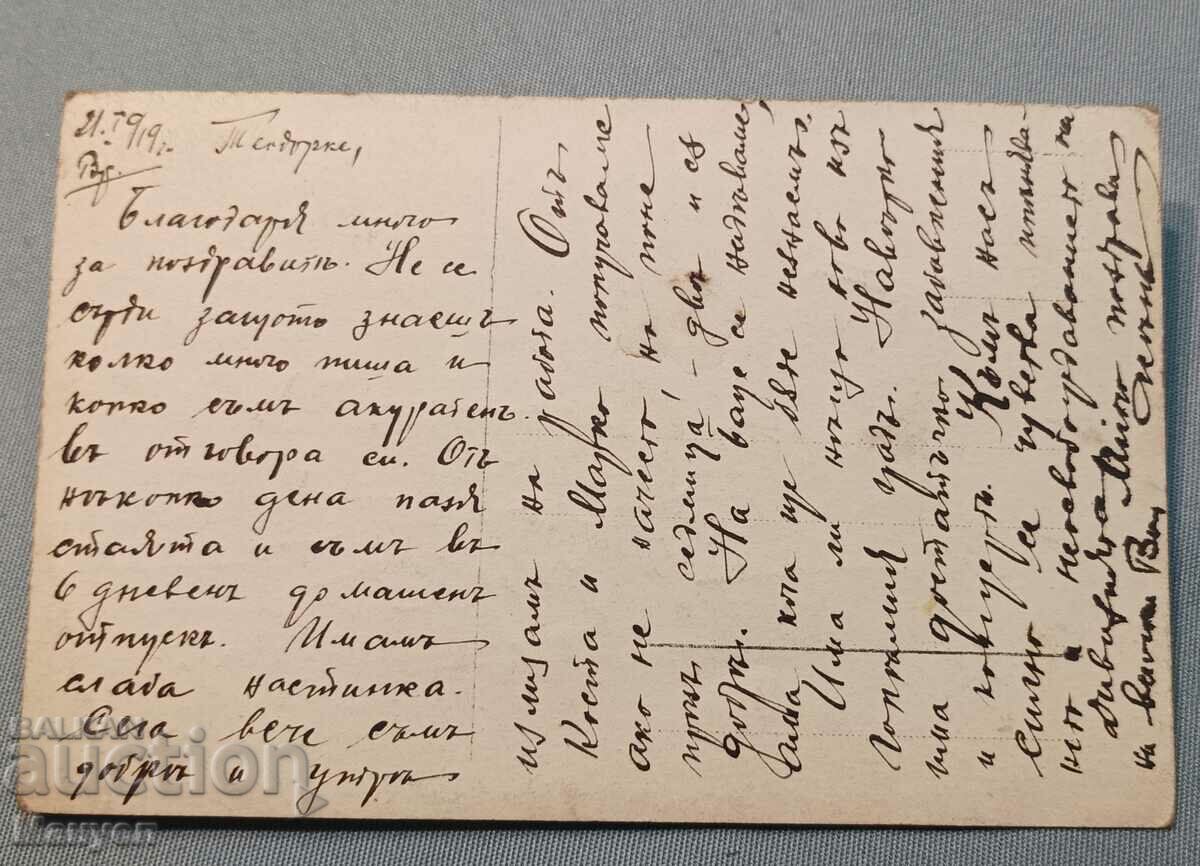 21. I 919 г. Теодорке,
Вр.
Благодаря много
за поздравитѣ. Не се
сърди защото знаешъ
колко много пиша и
колко съмъ акуратенъ
въ отговора си. Отъ
нѣколко дена пазя
стаята и съмъ въ
6 дневенъ домашенъ
отпускъ. Имамъ
слаба настинка.
Сега вече съмъ
добрѣ и утрѣ
излизамъ на работа. Отъ
Коста и Марко получаваме
ако не начесто, но поне
презъ седмица, – две и сѫ
добрѣ. На баце се надѣваме,
ама кога ще бѫде незнаемъ.
Има ли нѣщо ново изъ
топлия градъ. Навѣрно
има достатъчно забавления
и концерти. Къмъ насъ
силно се чувства
на всички Ви поздрави
BALKAN
auction